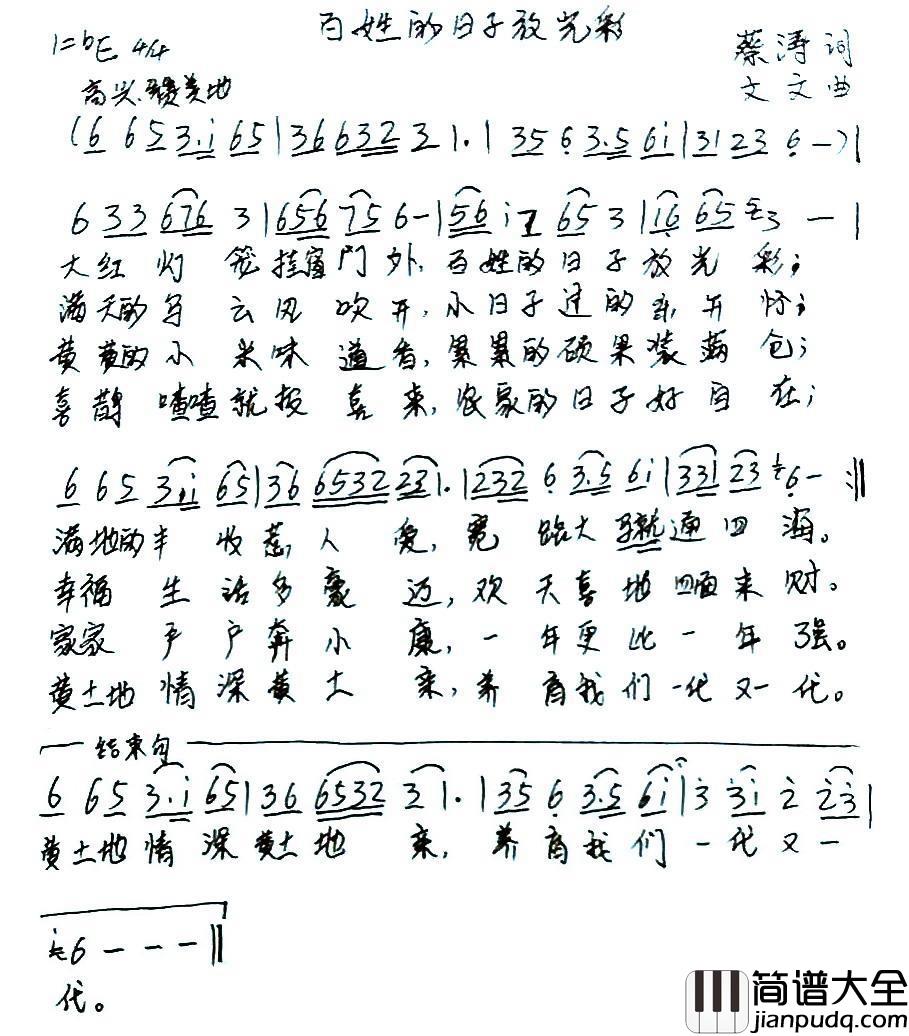 百姓的日子放光彩
1=bE 4/4
蔡涛词
高兴.赞美地
文文曲
(6 65 3.i 65|36 632 3 1.|35 6 3.5 6i|31 23 6 -)|
6 33 676 3|656 75 6-|56 i 65 3|16 65 3 -|
大红灯笼挂窗门外,百姓的日子放光彩;
满天的乌云风吹开,小日子过的乐开怀;
黄黄的小米味道香,累累的硕果装满仓;
喜鹊喳喳就报喜来,农家的日子好自在;
6 65 3.i 65|36 6532 23 1.|232 6 3.5 6i|331 23 6-:||
满地的丰收惹人爱,宽路大 通四海。
幸福生活多豪迈,欢天喜地 来财。
家家户奔小康,一年更比一年强。
黄土地情深黄土亲,养育我们一代又一代。
结束句
6 65 3.i 65|36 6532 3 1.|35 6 3.5 6i|3 3i 2 23|
黄土地情深黄土地亲,养育我们一代又一
6 - - -||
代。
简谱大全
jianpudq.com